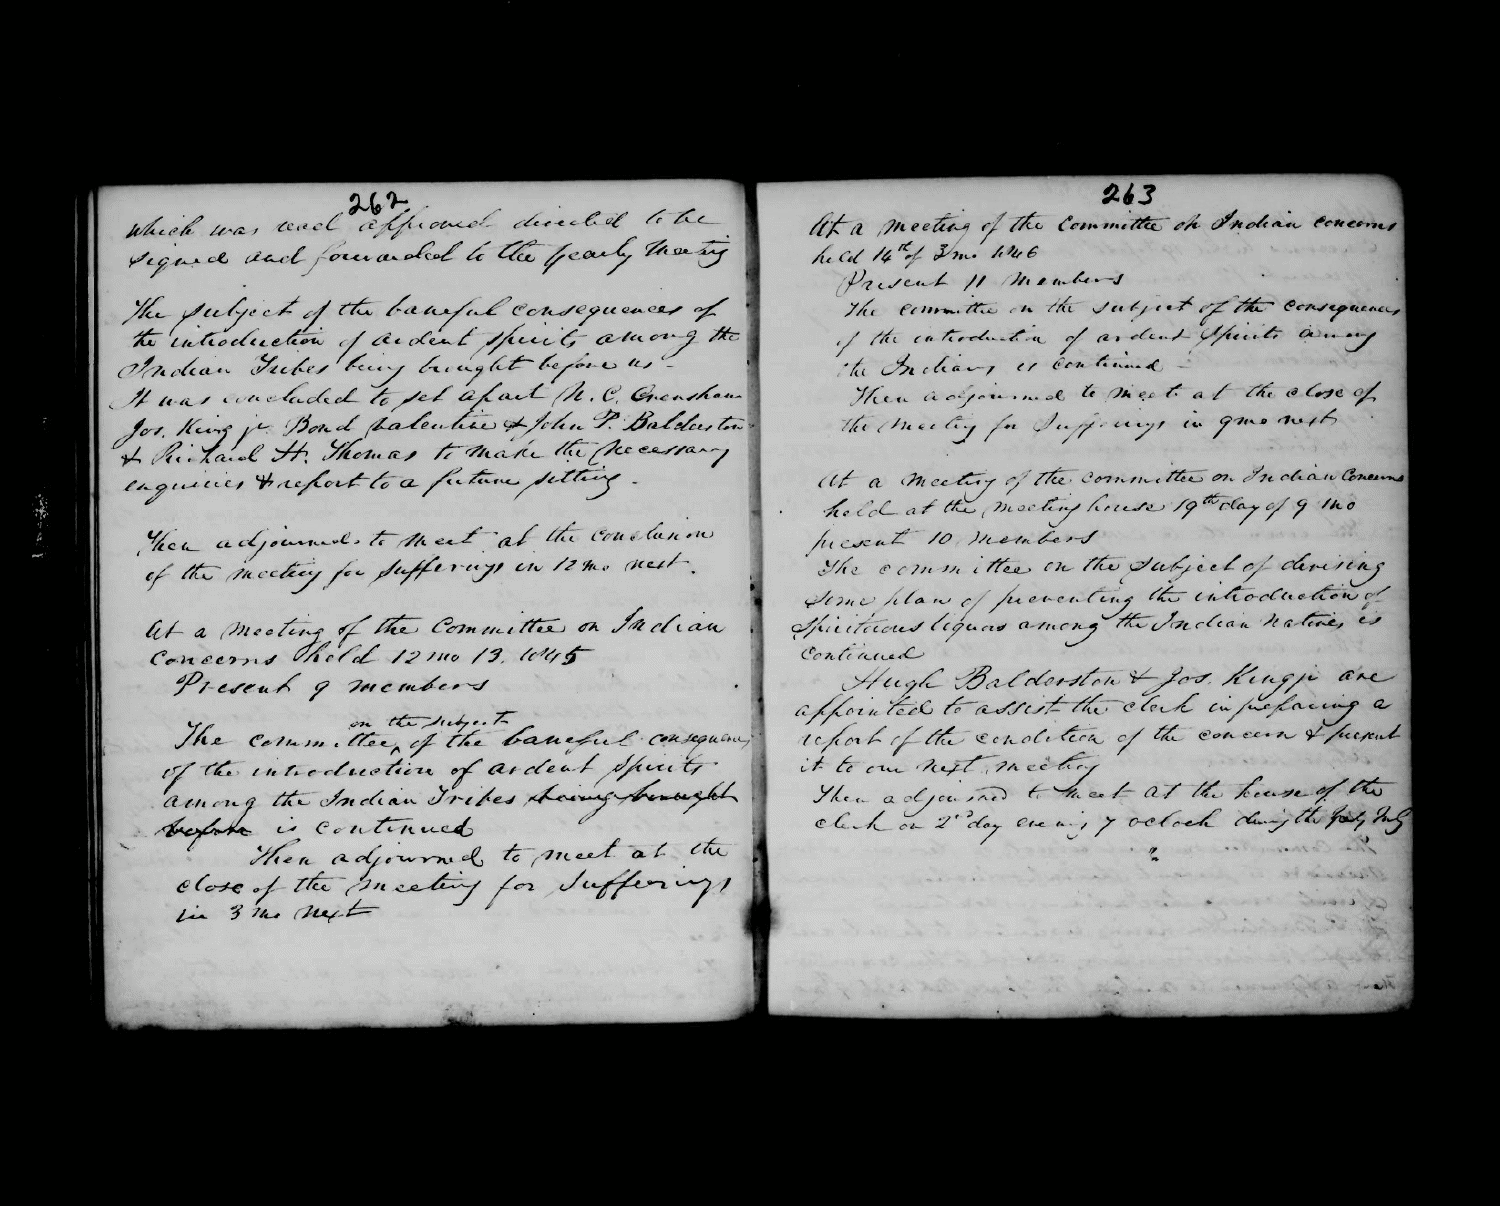 262
which was read approved directed to be
signed and forwarded to the yearly Meeting
The subject of the baneful consequences of
the introduction of ardent spirits among the
Indian Tribes being brought before us -
It was concluded to set apart N. C. Crenshaw
Jos. King jr Bond Valentine & John P. Balderston
& Richard H. Thomas to make the necessary
enquiries & report to a future sitting -
Then adjourned to meet at the conclusion
of the meeting for sufferings in 12 mo next.
At a meeting of the Committee on Indian
concerns held 12 mo 13. 1845
Present 9 members
on the subject
The committee ^ of the baneful consequences
of the introduction of ardent spirits
among the Indian Tribes being brought
before is continued
Then adjourned to meet at the
close of the meeting for Sufferings
in 3 mo next
263
At a meeting of the Committee on Indian concerns
held 14th of 3 mo 1846
Present 11 members
The committee on the subject of the consequences
of the introduction of ardent spirits among
the Indians is continued -
Then adjourned to meet at the close of
the meeting for Sufferings in 9 mo next
At a meeting of the committee on Indian Concerns
held at the meeting house 19th day of 9 mo
present 10 members
The committee on the subject of devising
some plan of preventing the introduction of
spirituous liquors among the Indian Natives is
continued
Hugh Balderston & Jos. King jr are
appointed to assist the clerk in preparing a
report of the condition of the concern & present
it to our next meeting
Then adjourned to meet at the house of the
clerk on 2nd day evening 7 oclock during the Yearly Mtg